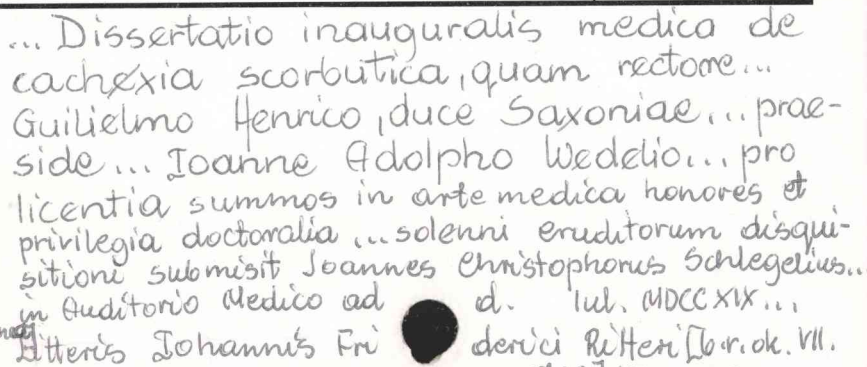 ... Dissertatio inauguralis medica de
cachexia scorbutica, quam rectore...
Guilielmo Henrico, duce Saxoniae... prae-
side... Ioanne Adolpho Wedelio... pro
licentia summos in arte medica honores et
privilegia doctoralia ... solenni eruditorum disqui-
sitioni submisit Joannes Christophorus Schlegelius...
in Auditorio Medico ad d. Iul. MDCCXIX...
Litteris Iohannis Friderici Ritteri [b.r. ok. VII.